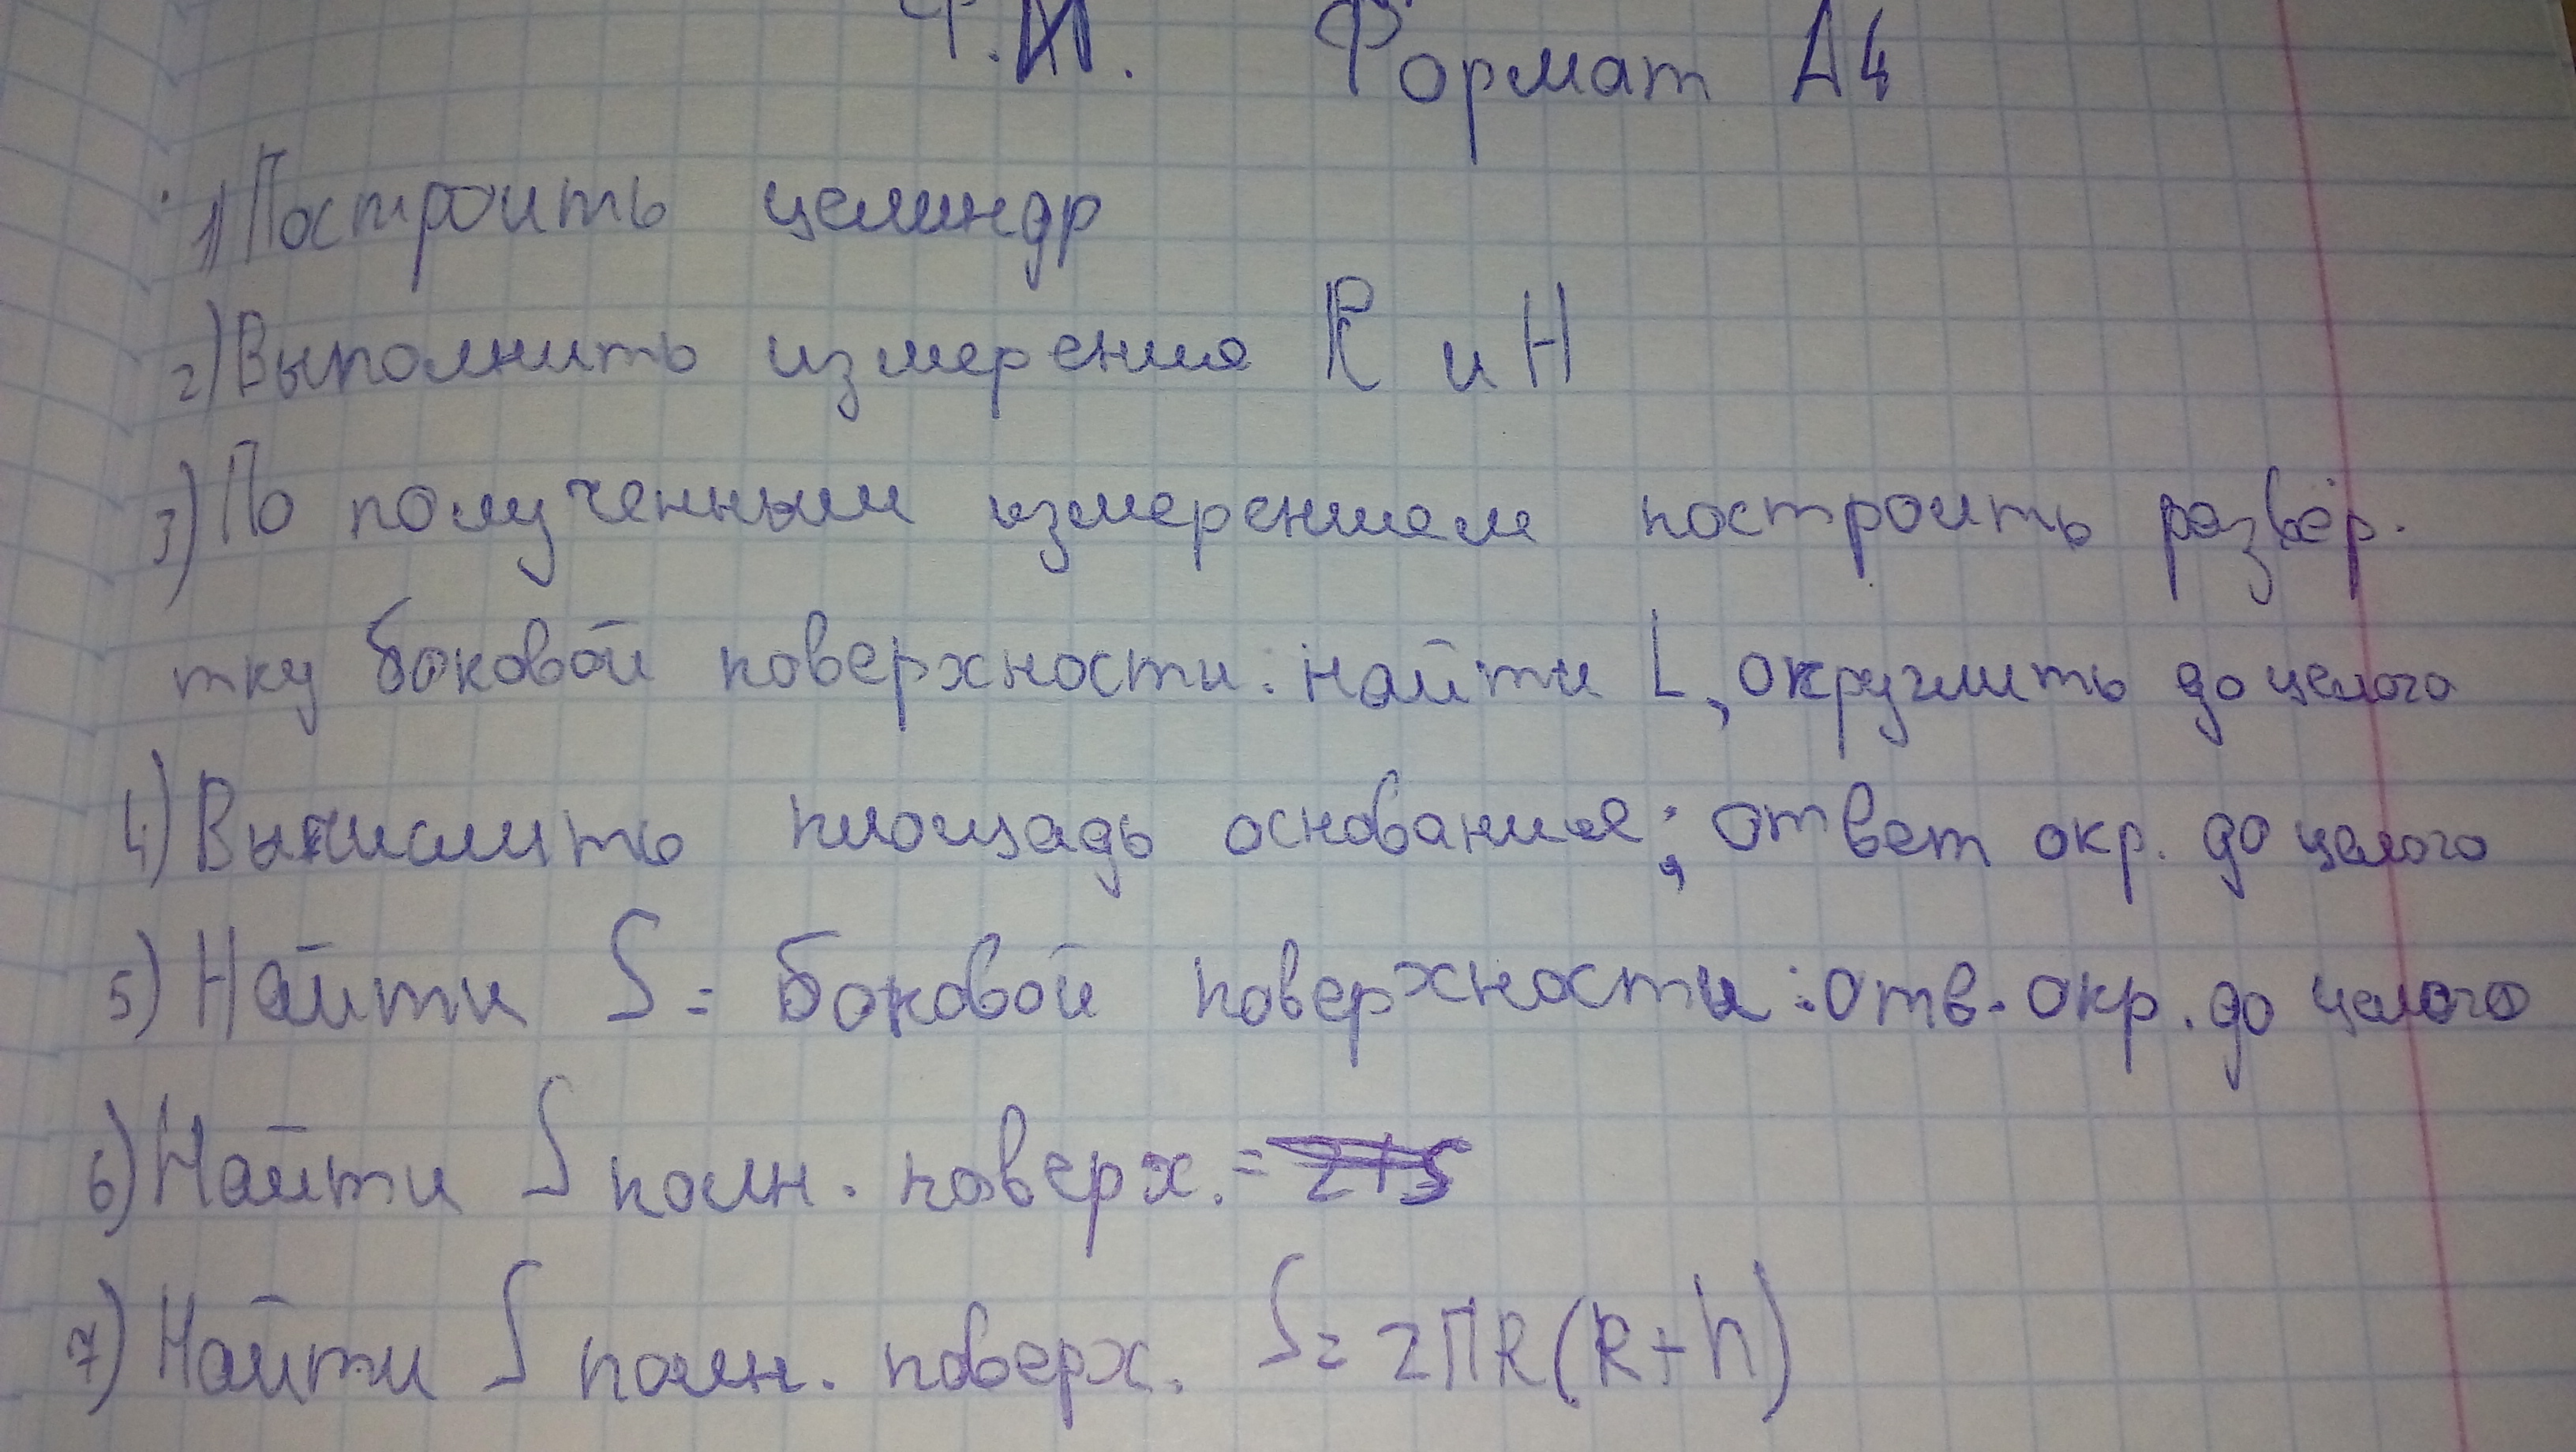 Ф.И. Формат А4
1) Построить целиндр
2) Выполнить измерения R и H
3) По полученным измерениям построить развёр-
тку боковой поверхности: найти L, округлить до целого
4) Вычислить площадь основания; ответ окр. до целого
5) Найти S = боковой поверхности: отв. окр. до целого
6) Найти S полн. поверх. =
7) Найти S полн. поверх. S = 2ПR(R+h)